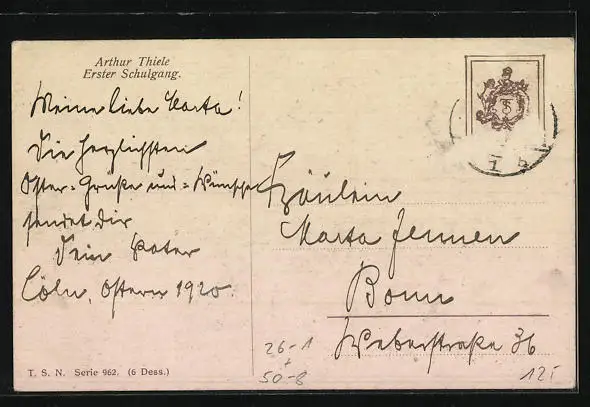 Arthur Thiele
Erster Schulgang.
Meine liebe Marta!
Die herzlichsten
Oster-Grüße und-Wünsche
sendet dir
Dein Vater
Cöln, Ostern 1920.
Fräulein
Marta Jennen
Bonn
Weberstraße 36
T. S. N. Serie 962. (6 Dess.)
26-1
+
50-8